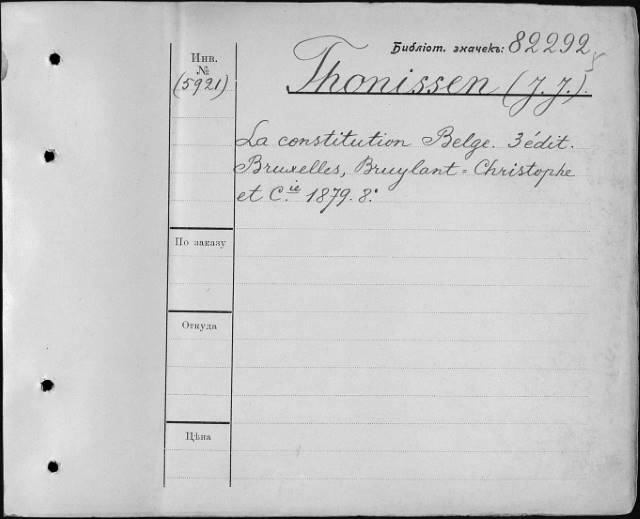 Библіот. значекъ: 82292
Инв.
№
(5921)
Thonissen (J. J.).
La constitution Belge. 3 édit.
Bruxelles, Bruylant-Christophe
et C.ie 1879. 8.º
По заказу
Откуда
Цѣна